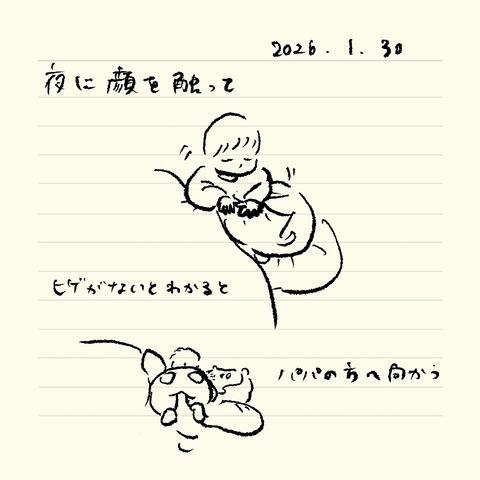 2026.1.30
夜に顔を触って
ヒゲがないとわかると
パパの方へ向かう